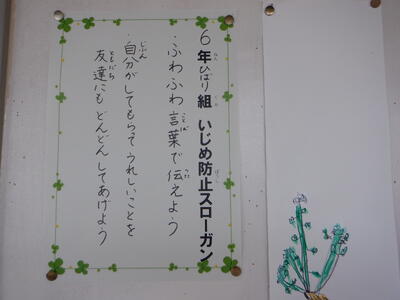 6年ひばり組 いじめ防止スローガン
・ふわふわ言葉で伝えよう
・自分がしてもらってうれしいことを
友達にもどんどんしてあげよう